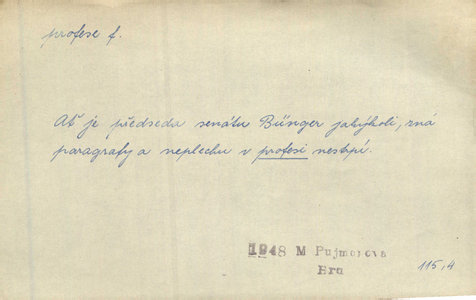 profese f.
Ať je předseda senátu Bünger jakýkoli, zná
paragrafy a neplechu v profesi nestrpí.
1948 M Pujmanova
Hra
115,4